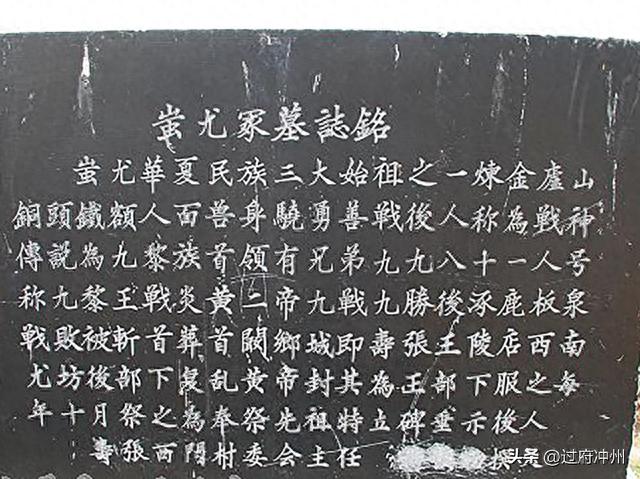 蚩尤冢墓誌銘
蚩尤華夏民族三大始祖之一煉金盧山
銅頭鐵額人面兽身驍勇善戰後人称為戰神
傳説為九黎族首領有兄弟九九八十一人号
称九黎王戰炎黄二帝九戰九勝後涿鹿板泉
戰敗被斬首葬首闞鄉城即壽張王陵店西南
尤坊後部下復乱黄帝封其為王部下服之每
年十月祭之為奉祭先祖特立碑垂示後人
壽張西門村委会主任 撰
头条 @过府冲州